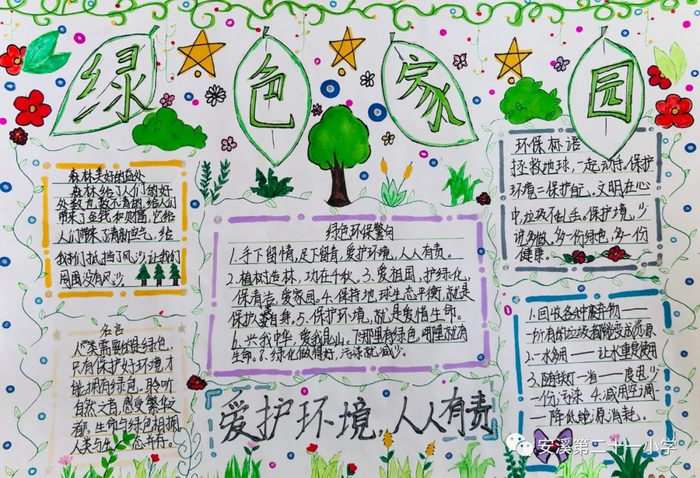 绿色家园
森林美好的益处
森林给了人们的好
处数也数不清的,给人们
带来了金钱和财富,它给
人们带来了清新空气,给
我们抵挡了风沙让我们
周围没有风沙
名言
人类需要
只有保护好环境,才
能拥有绿色,聆听
自然之音,感受繁华之
生命与绿色相拥
人类与生态并存。
绿色环保警句
1.手下留情,足下留青,爱护环境,人人有责。
2.植树造林,功在千秋。3.爱祖国,护绿化,
保清洁,爱家园。4.保持地球生态平衡,就是
保护人类自身。5.保护环境,就是爱惜生命。
6.兴我中华,爱我昆山。7.哪里有绿色,哪里就有
生命。8.绿化做得好,污染就减少。
爱护环境,人人有责
环保标语
拯救地球,一起动手。保护
环境=保护自己,文明在心
中,垃圾不出手。保护环境,少
说多做,多一份绿色,多一份
健康
1.回收各种废弃物——
所有的垃圾都能变成资源
2.一水多用——让水重复使用
3.随手关灯一省一度电少
一份污染 4.减用空调
——降低能源消耗。
安溪第二十一小学